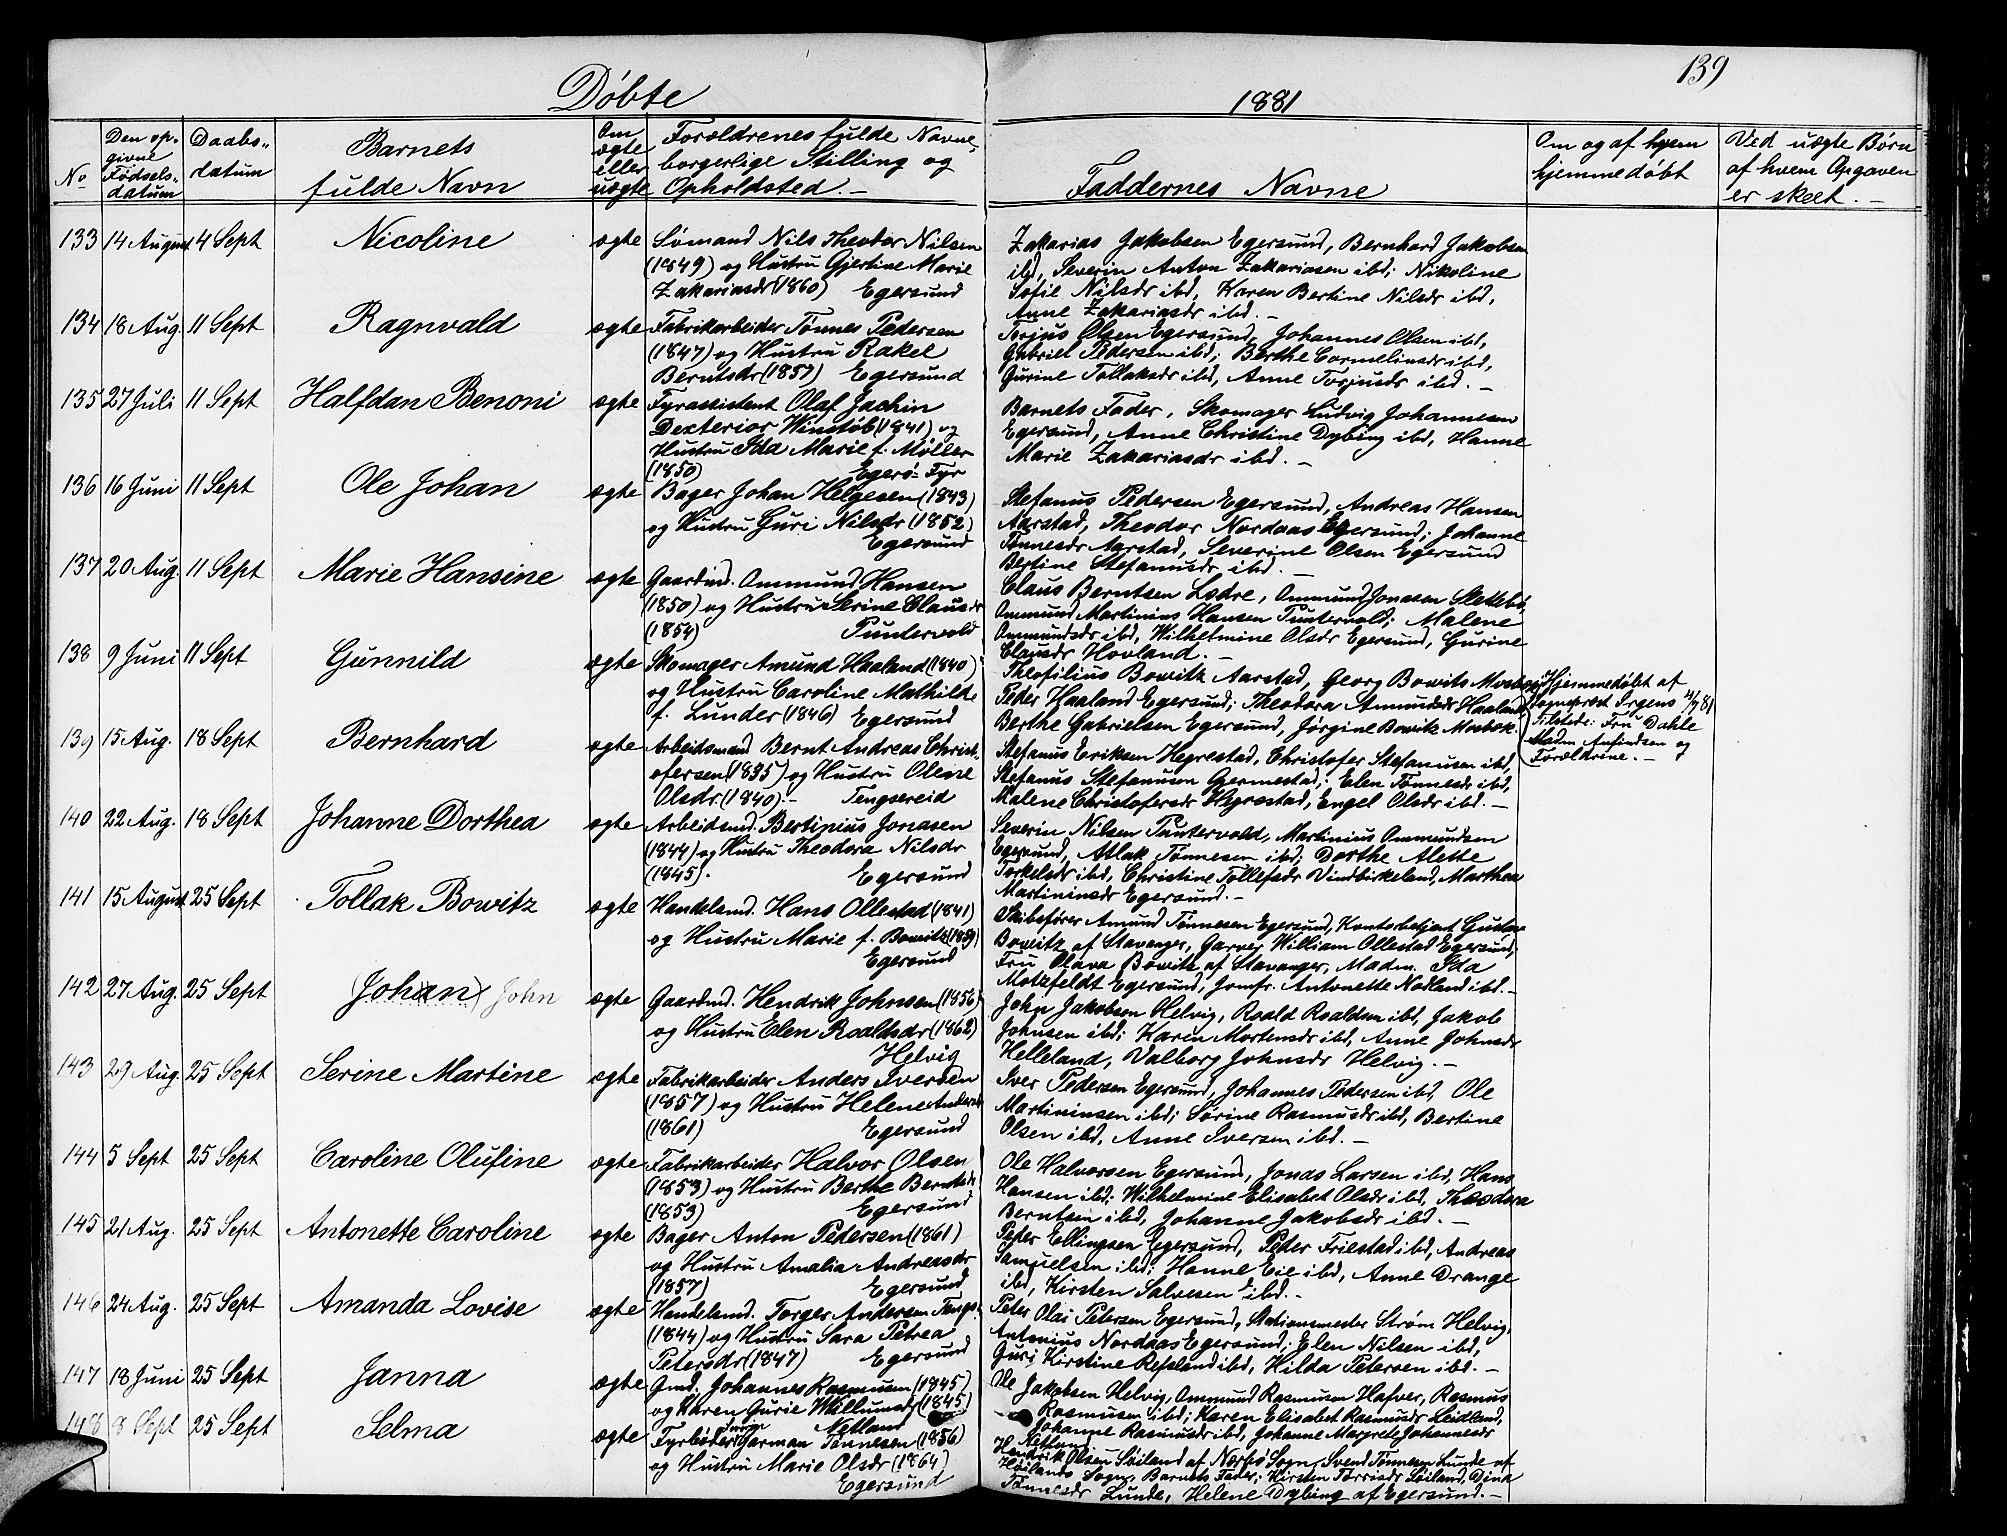 139
Døbte
1881
No
Den opgivne Fødselsdatum
Daabsdatum
Barnets fulde Navn
Om ægte eller uægte
Forældrenes fulde Navne, borgerlige Stilling og Opholdsted.-
Faddernes Navne
Om og af hvem hjemmedøbt
Ved uægte Børn af hvem Opgaven er skeet.-
133 14 August 4 Sept Nicoline ægte
Sømand Nils Theodor Nilsen
(1849) og Hustru Gjertine Marie
Zakariasdr (1860) Egersund
Zakarias Jakobsen Egersund, Bernhard Jakobsen
ibd, Severin Anton Zakariasen ibd; Nikoline
Sofie Nilsdr ibd, Karen Bertine Nilsdr ibd,
Anne Zakariasdr ibd.-
134 18 Aug. 11 Sept Ragnvald ægte
Fabrikarbeider Tønnes Pedersen
(1847) og Hustru Rakel
Berntsdr (1857) Egersund
Torjus Olsen Egersund, Johannes Olsen ibd,
Gabriel Pedersen ibd; Berthe Corneliusdr ibd,
Gurine Tollaksdr ibd, Anne Torjusdr ibd.-
135 27 Juli 11 Sept Halfdan Benoni ægte
Fyrassistent Olaf Jachin
Dexterior Winsløb (1841) og
Hustru Ida Marie f. Møller
(1850) Egerø Fyr
Barnets Fader, Skomager Ludvig Johannesen
Egersund, Anne Christine Dybing ibd, Hanne
Marie Zakariasdr ibd.-
136 16 Juni 11 Sept Ole Johan ægte
Bager Johan Helgesen (1843)
og Hustru Guri Nilsdr (1852)
Egersund
Stefanus Pedersen Egersund, Andreas Hansen
Aarstad, Theodor Nordaas Egersund; Johanne
Tønnesdr Aarstad, Severine Olsen Egersund
Bertine Stefanusdr ibd.-
137 20 Aug. 11 Sept Marie Hansine ægte
Gaardmd. Ommund Hansen
(1850) og Hustru Serine Clausdr
(1854) Puntervold
Claus Berntsen Lædre, Ommund Jonasen Slettebø,
Ommund Martinius Hansen Puntervold; Malene
Ommundsdr ibd, Wilhelmine Olsdr Egersund, Gurine
Clausdr Hovland.-
138 9 Juni 11 Sept Gunnild ægte
Skomager Amund Haaland (1840)
og Hustru Caroline Mathilde
f. Lunder (1846) Egersund
Theofilius Bowitz Aarstad, Georg Bowitz Mosbæk,
Peder Haaland Egersund; Theodora Amundsdr Haaland,
Berthe Gabrielsen Egersund, Jørgine Bowitz Mosbæk.
Hjemmedøbt af
Sogneprest Irgens 4/7 81
Tilstede: Fru Dahle
Madm. Anfindsen og
Forældrene.-
139 15 Aug. 18 Sept Bernhard ægte
Arbeidsmand Bernt Andreas Christ-
ofersen (1835) og Hustru Olene
Olsdr. (1840).- Tengsereid
Stefanus Eriksen Hegrestad, Christofer Stefanusen ibd,
Stefanus Stefanusen Gjermestad; Elen Tønnesdr ibd,
Malene Christofersdr Hegrestad, Engel Olsdr ibd.-
140 22 Aug. 18 Sept Johanne Dorthea ægte
Arbeidsmd. Bertinius Jonasen
(1844) og Hustru Theodora Nilsdr
(1845). Egersund
Severin Nilsen Puntervold, Martinius Ommundsen
Egersund, Atlak Tønnesen ibd; Dorthe Alette
Torkelsdr ibd, Christine Tollefsdr Vindbirkeland, Marthea
Martiniusdr Egersund.-
141 15 August 25 Sept Tollak Bowitz ægte
Handelsmd. Hans Ollestad (1841)
og Hustru Marie f. Bowitz (1859)
Egersund
Skibsfører Amund Tønnesen Egersund, Kontorbetjent Gustav
Bowitz af Stavanger, Garver William Ollestad Egersund,
Fru Olava Bowitz af Stavanger, Madm. Ida
Motzfeldt Egersund, Jomfr. Antonette Nodland ibd.-
142 27 Aug. 25 Sept (Johan) John ægte
Gaardmd. Hendrik Johnsen (1856)
og Hustru Elen Roaldsdr (1862)
Helvig
John Jakobsen Helvig, Roald Roaldsen ibd, Jakob
Johnsen ibd; Karen Mortensdr ibd, Anne Johnsdr
Helleland, Valborg Johnsdr Helvig.-
143 29 Aug. 25 Sept Serine Martine ægte
Fabrikarbeider Anders Iversen
(1857) og Hustru Helene Andersdr
(1861) Egersund
Iver Pedersen Egersund, Johannes Pedersen ibd, Ole
Martininsen ibd; Sørine Rasmusdr ibd, Bertine
Olsen ibd, Anne Iversen ibd.-
144 5 Sept 25 Sept Caroline Olufine ægte
Fabrikarbeider Halvor Olsen
(1853) og Hustru Berthe Berntsdr
(1853) Egersund
Ole Halvorsen Egersund, Jonas Larsen ibd, Hans
Hansen ibd; Wilhelmine Elisabet Olsdr ibd, Theodora
Berntsen ibd, Johanne Jakobsdr ibd.-
145 21 Aug. 25 Sept Antonette Caroline ægte
Bager Anton Pedersen (1861)
og Hustru Amalia Andreasdr
(1857) Egersund
Peder Ellingsen Egersund, Peder Friestad ibd, Andreas
Samuelsen ibd; Hanne Eie ibd, Anne Drange
ibd, Kirsten Salvesen ibd.-
146 24 Aug. 25 Sept Amanda Lovise ægte
Handelsmd. Torger Andersen Tengs.
(1844) og Hustru Sara Petrea
Petersdr (1847) Egersund
Peter Olai Petersen Egersund, Stationsmester Strøm Helvig,
Antonius Nordaas Egersund; Elen Nilsen ibd,
Guri Kirstine Refsland ibd, Hilda Petersen ibd.-
147 18 Juni 25 Sept Janna ægte
Gmd. Johannes Rasmusen (1845)
og Karen Gurie Willumsdr (1845)
Netland
Ole Jakobsen Helvig, Ommund Rasmusen Hafver, Rasmus
Rasmusen ibd; Karen Elisabet Rasmusdr Leidland,
Johanne Rasmusdr ibd, Johanne Margrete Johannesdr
Netland
148 8 Sept 25 Sept Selma ægte
Fyrbøder Garman Tønnesen (1856)
og Hustru Marie Olsdr (1864)
Egersund
Hendrik Olsen Søiland af Nærbø Sogn, Svend Tønnesen Lunde af
Høilands Sogn, Barnets Fader; Kirsten Torrisdr Søiland, Dina
Tønnesdr Lunde, Helene Dybing af Egersund.-